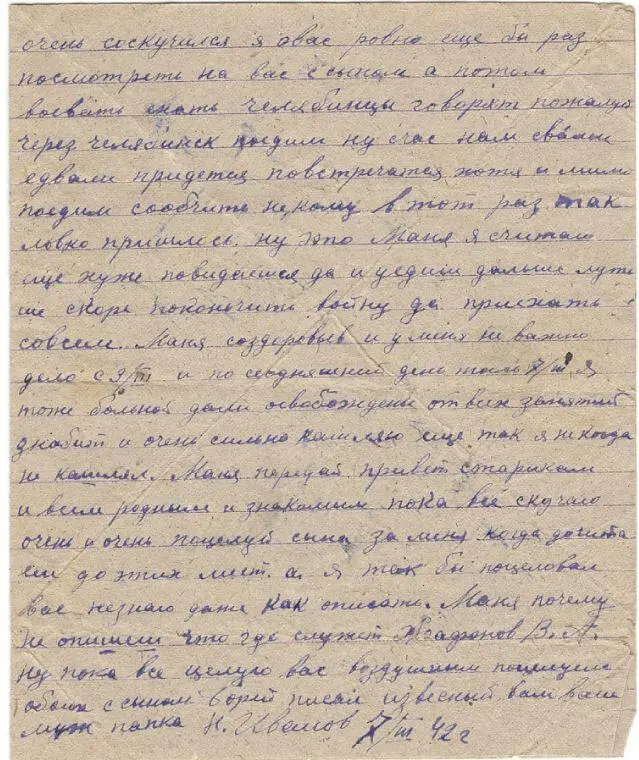 очень соскучился я овас ровно еще бы раз
посмотреть на вас с сыном а потом
воевать опять челябинцы говорят пожалуй
через челябинск поедим ну счас нам свами
едвали придется повстречатся хотя и мимо
поедим сообчить некому в тот раз так
ловко пришлось. ну это Маня я считаю
еще хуже повидаешся да и уедиш дальше лутч
ше скоре покончить войну да приехать
совсем. Маня создоровьев и уменя не важно
дело с 3/III и по сегодняшний день 7/III я
тоже больной дали освобождение от всех занятий
знабит и очень сильно кашляю еще так я некогда
не кашлял. Маня передай привет старикам
и всем родным и знакомым пока всё скучаю
очень и очень поцелуй сына за меня когда дочита
еш до этих мест. а я так бы поцеловал
вас незнаю даже как описать. Маня почему
не опишеш что где служит Агафонов В. А.
ну пока все целую вас воздушным поцелуем
обоих с сыном писал известный вам ваш
муж папка Н. Иванов 7/III 42 г